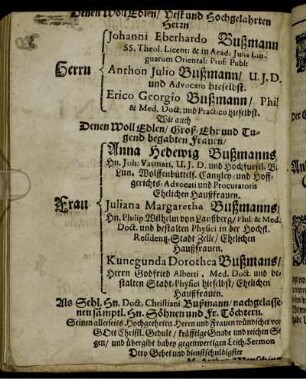 Denen WollEdlen / Vest und Hochgelahrten
Herrn
Johanni Eberhardo Bußmann
SS. Theol. Licent: & in Acad: Julia Lin-
guarum Oriental: Prof: Publ:
Herrn
Anthon Julio Bußmann / U. J. D.
und Advocato hieselbst.
Erico Georgio Bußmann / Phil.
& Med. Doct. und Practico hieselbst.
Wie auch
Denen Woll Edlen / Groß-Ehr und Tu-
gend begabten Frauen /
Anna Hedewig Bußmanns
Hn. Joh. Vasmari, U. J. D. und Hochfürstl. Br.
Lün. Wolffenbüttels. Cantzley- und Hoff-
gerichts-Advocati und Procuratoris
Ehelichen Haußfrauen.
Frau
Juliana Margaretha Bußmanns /
Hn. Philip Wilhelm von Phil. & Med.
Doct. und bestalten Physici in der Hochfl.
Residentz-Stadt Zelle / Ehelichen
Haußfrauen.
Kunegunda Dorothea Bußmans /
Herrn Godfried Alberti, Med. Doct. und be-
stalten Stadt-Physici hieselbst / Ehelichen
Haußfrauen.
Als Sehl. Hn. Doct. Christiani Bußmann / nachgelasse-
nen sämptl. Hn. Söhnen und Fr. Töchtern.
Seinen allerseits Hochgeehrten Herrn und Frauen wünschet von
GOtt Christl. Gedult / kräfftige Gnade und reichen Se-
gen / und übergibt dabey gegenwertigen Leich-Sermon
Dero Gebet und dienstschuldigster